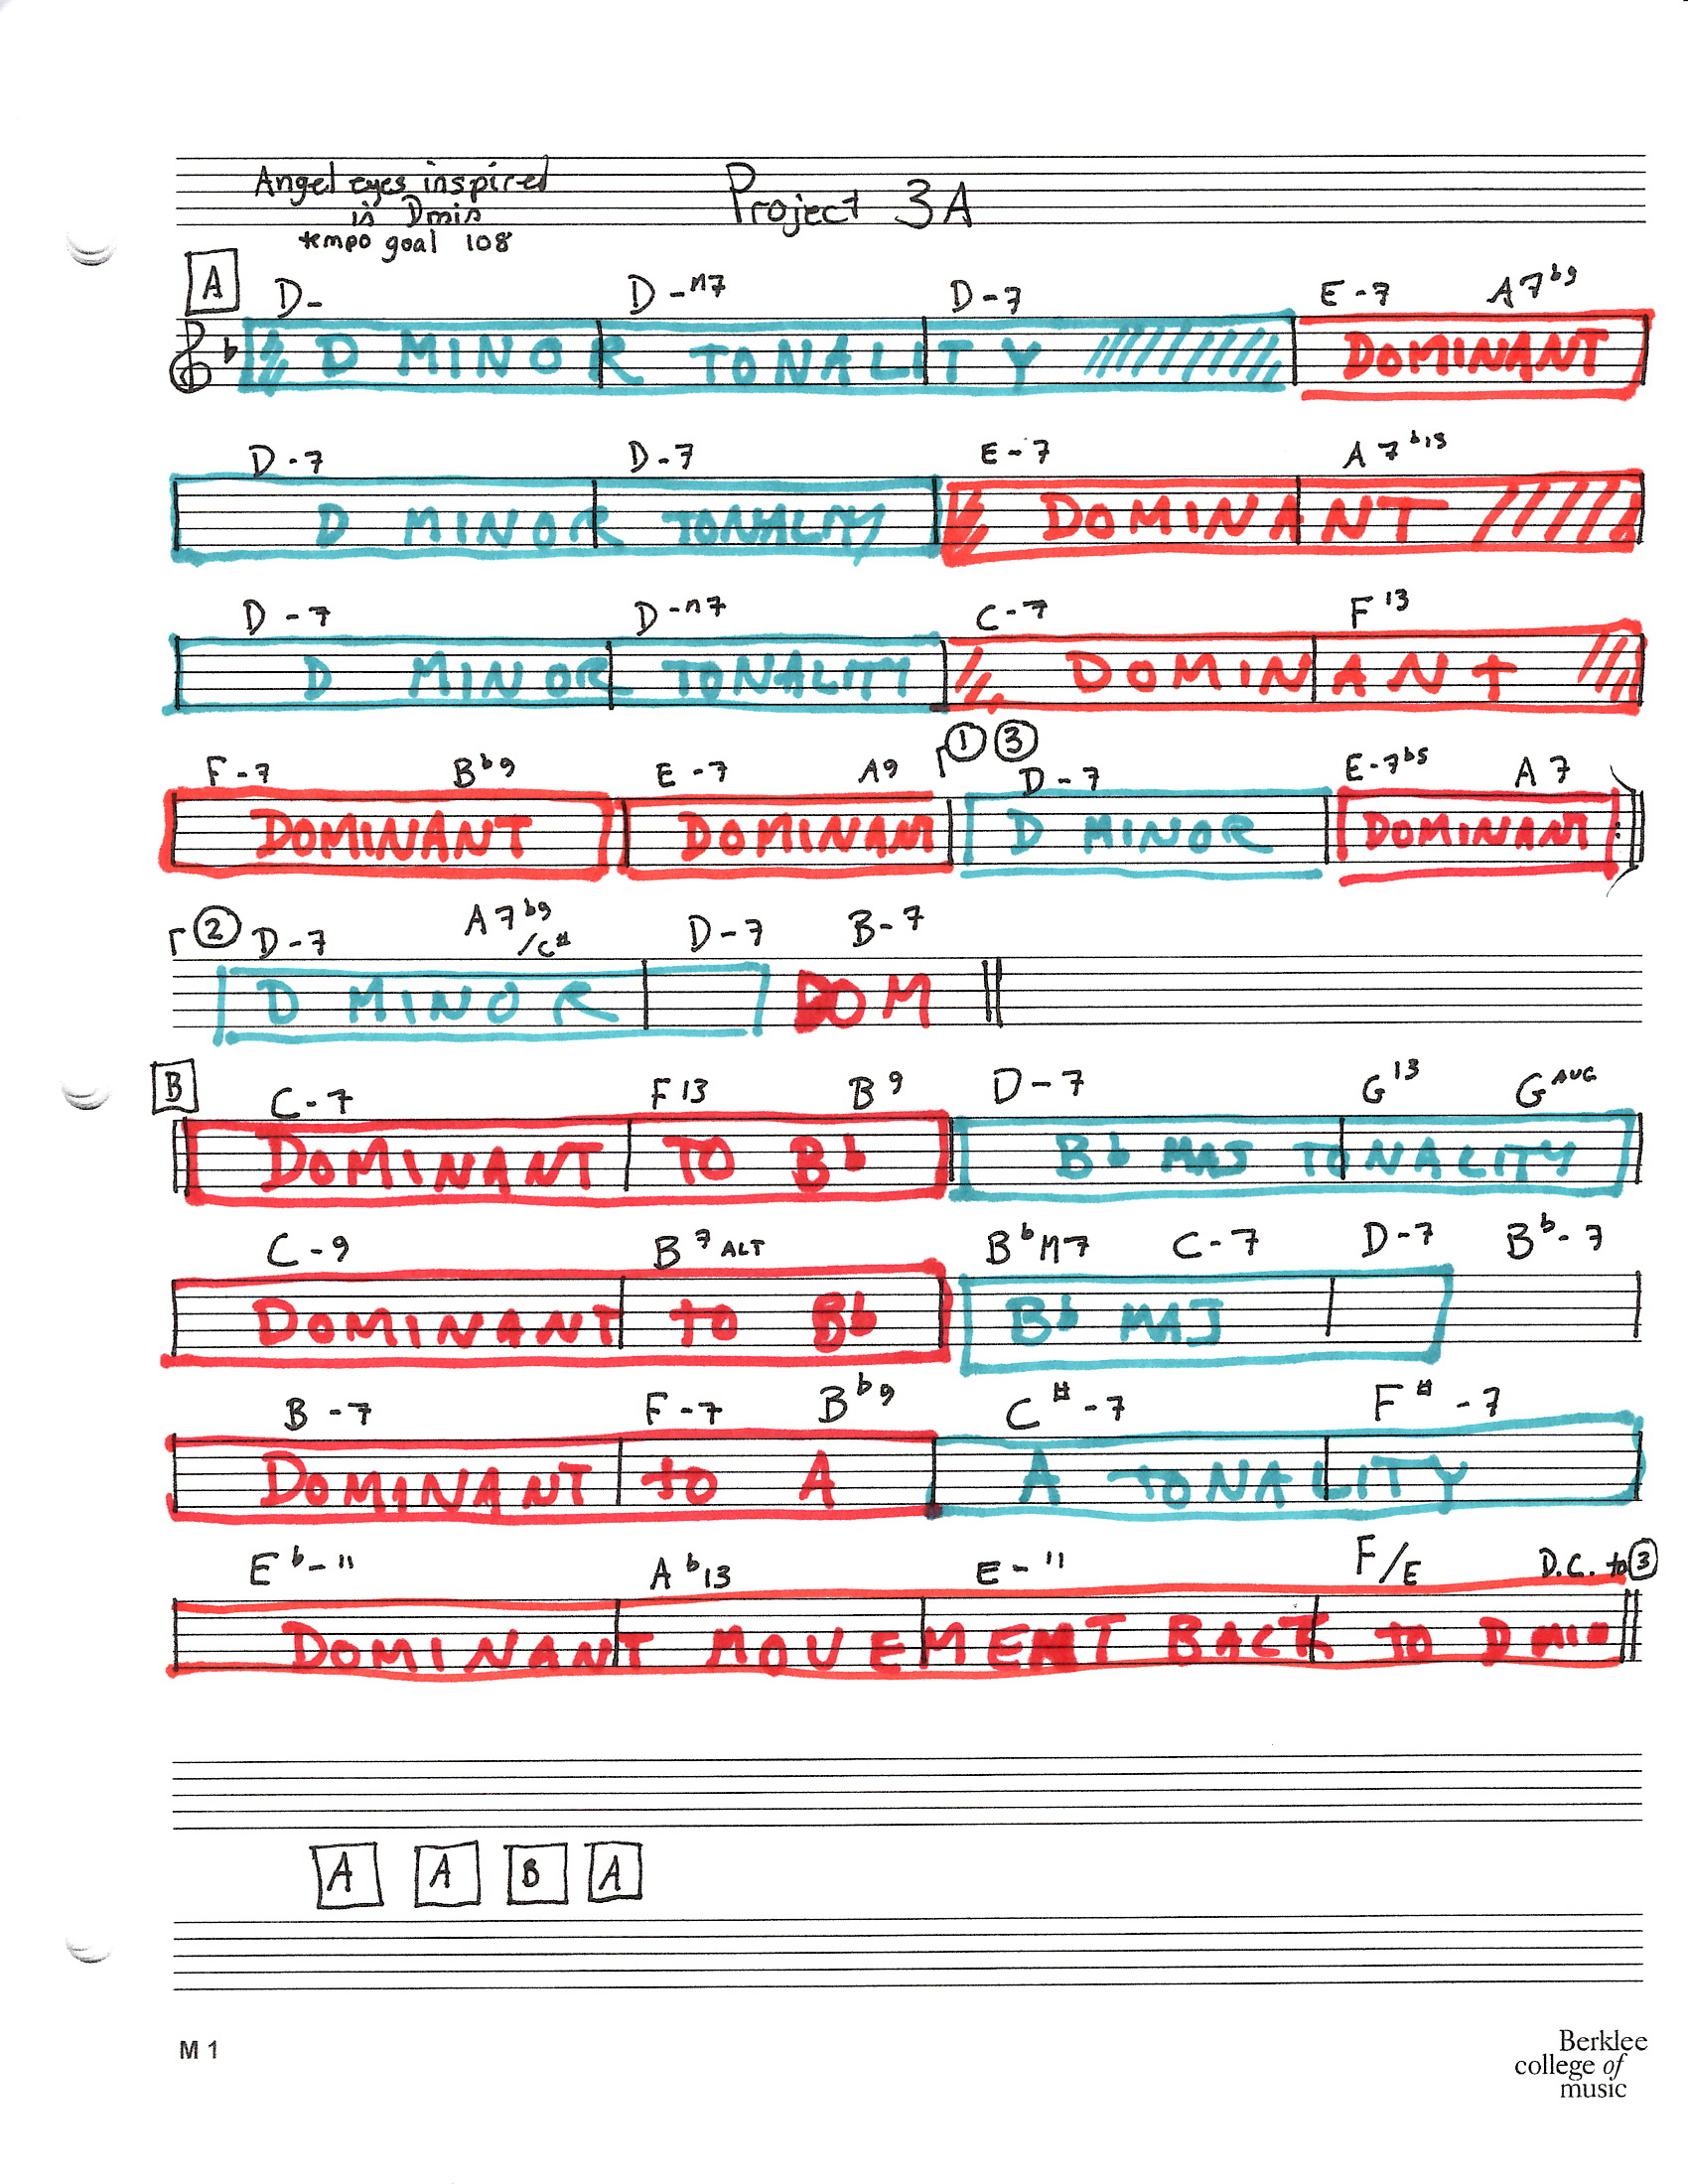 Angel eyes inspired
Project 3A
in Dmin
tempo goal 108
A D- D-M7 D-7 E-7 A7b9
D MINOR TONALITY DOMINANT
D-7 D-7 E-7 A7b13
D MINOR TONALITY DOMINANT
D-7 D-M7 C-7 F13
D MINOR TONALITY DOMINANT
1 3
F-7 Bb9 E-7 A9 D-7 E-7b5 A7
DOMINANT DOMINANT D MINOR DOMINANT
2 D-7 A7b9/C# D-7 B-7
D MINOR DOM
B C-7 F13 B9 D-7 G13 GAUG
DOMINANT TO Bb Bb MAJ TONALITY
C-9 B7ALT BbM7 C-7 D-7 Bb-7
DOMINANT to Bb Bb MAJ
B-7 F-7 Bb9 C#-7 F#-7
DOMINANT to A A TONALITY
Eb-11 Ab13 E-11 F/E D.C. to 3
DOMINANT MOVEMENT BACK TO D MIN
A A B A
M 1
Berklee
college of
music